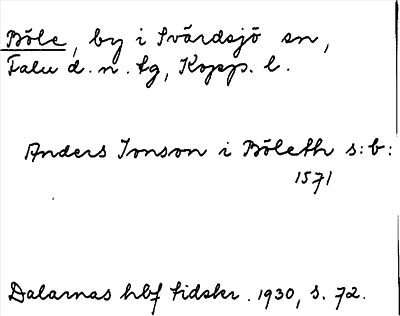 Böle, by i Svärdsjö sn,
Falu d. n. tg, Kopp. l.
Anders Jonson i Böleth s:b:
1571
Dalarnas hbf tidskr. 1930, s. 72.